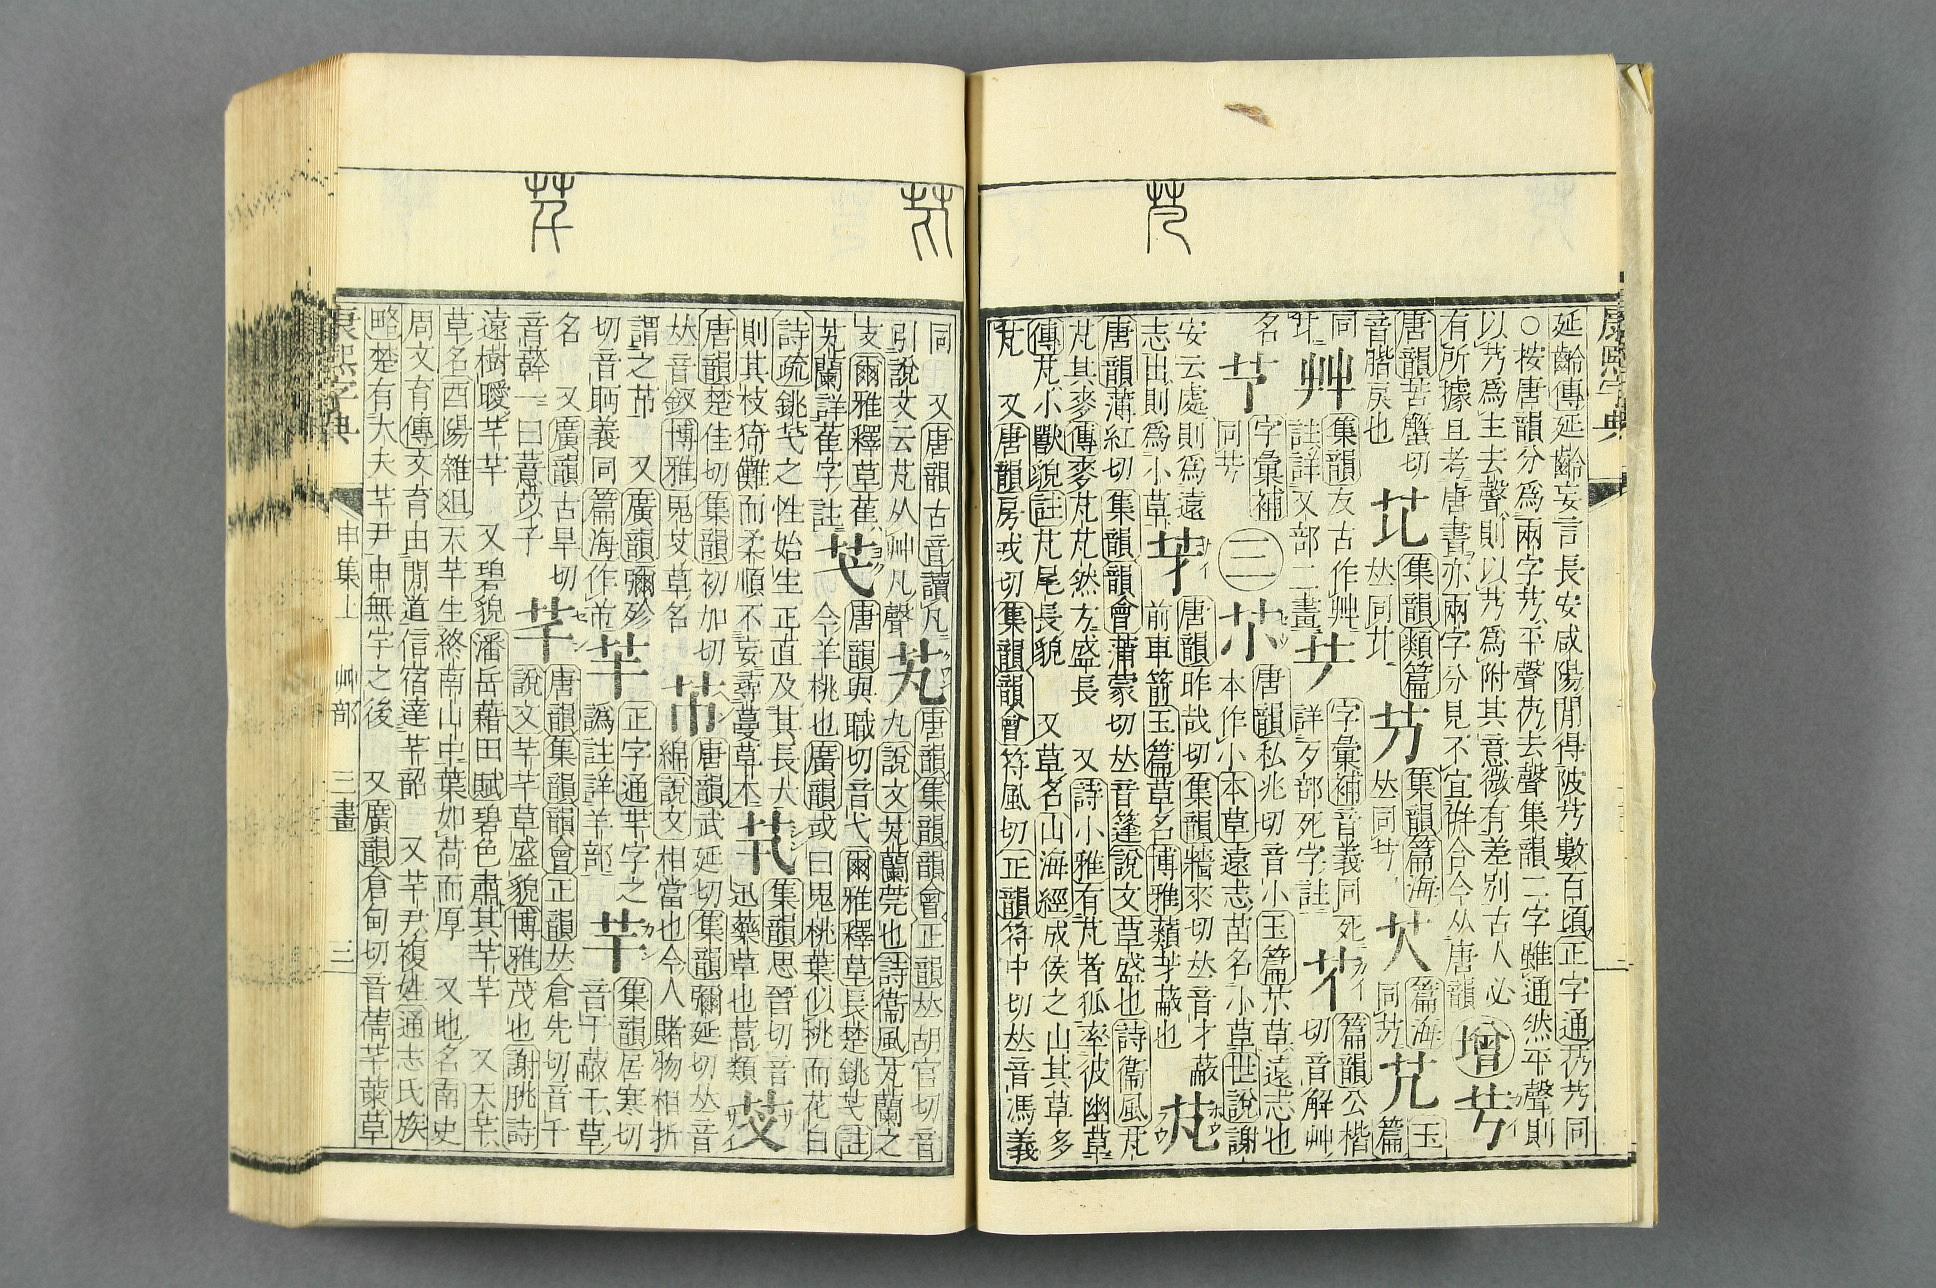 康熙字典
延齡傳延齡妄言長安咸陽閒得陂艿數百頃正字通芿艿同
○按唐韻分爲兩字艿平聲芿去聲集韻二字雖通然平聲則
以艿爲主去聲則以艿爲附其意微有差別古人必
有所據且考唐書亦兩字分見不宜倂合今从唐韻
增
唐韻苦蟹切
音揩戾也
集韻類篇
集韻篇海
篇海
同艻
艽
玉
篇
同
艸
集韻友古作艸
註詳又部二畫
字彙補音義同死
詳歹部死字註
篇韻公楷
切音解艸
名
字彙補
同艿
三
唐韻私兆切音小玉篇芣草遠志也
本作小本草遠志苗名小草世說謝
安云處則爲遠
志出則爲小草
芓
唐韻昨哉切集韻牆來切𠀤音才蔽
前車箭玉篇草名博雅蘱芓蔽也
芃
唐韻薄紅切集韻韻會蒲蒙切𠀤音篷說文草盛也詩衞風芃
芃其麥傳麥芃芃然方盛長 又詩小雅有芃者狐率彼幽草
傳芃小獸貌註芃尾長貌 又草名山海經成侯之山其草多
芃 又唐韻房戎切集韻韻會符風切正韻符中切𠀤音馮義
同 又唐韻古音讀凡
引說文云芃从艸凡聲
芄
唐韻集韻韻會正韻𠀤胡官切音
九說文芄蘭莞也詩衞風芄蘭之
支爾雅釋草雚
芄蘭詳雚字註
芅
唐韻與職切音弋爾雅釋草長楚銚芅註
今羊桃也廣韻或曰鬼桃葉似桃而花白
詩疏銚芅之性始生正直及其長大
則其枝猗儺而柔順不妄尋蔓草木
集韻思晉切音
迅藥草也蒿類
芆
唐韻楚佳切集韻初加切
𠀤音釵博雅鬼芆草名
芇
唐韻武延切集韻彌延切𠀤音
綿說文相當也今人賭物相折
謂之芇 又廣韻彌殄
切音眄義同篇海作芇
芈
正字通芈字之
譌註詳羊部
芉
集韻居寒切
音干蔽芉草
名 又廣韻古旱切
音簳一曰薏苡子
芊
唐韻集韻韻會正韻𠀤倉先切音千
說文芊芊草盛貌博雅茂也謝朓詩
遠樹曖芊芊 又碧貌潘岳藉田賦碧色肅其芊芊 又天芊
草名酉陽雜俎天芊生終南山中葉如荷而厚 又地名南史
周文育傳文育由閒道信宿達芊韶 又芊尹複姓通志氏族
略楚有大夫芊尹申無宇之後 又廣韻倉甸切音蒨芊萰草
康熙字典
申集上 艸部 三畫 三